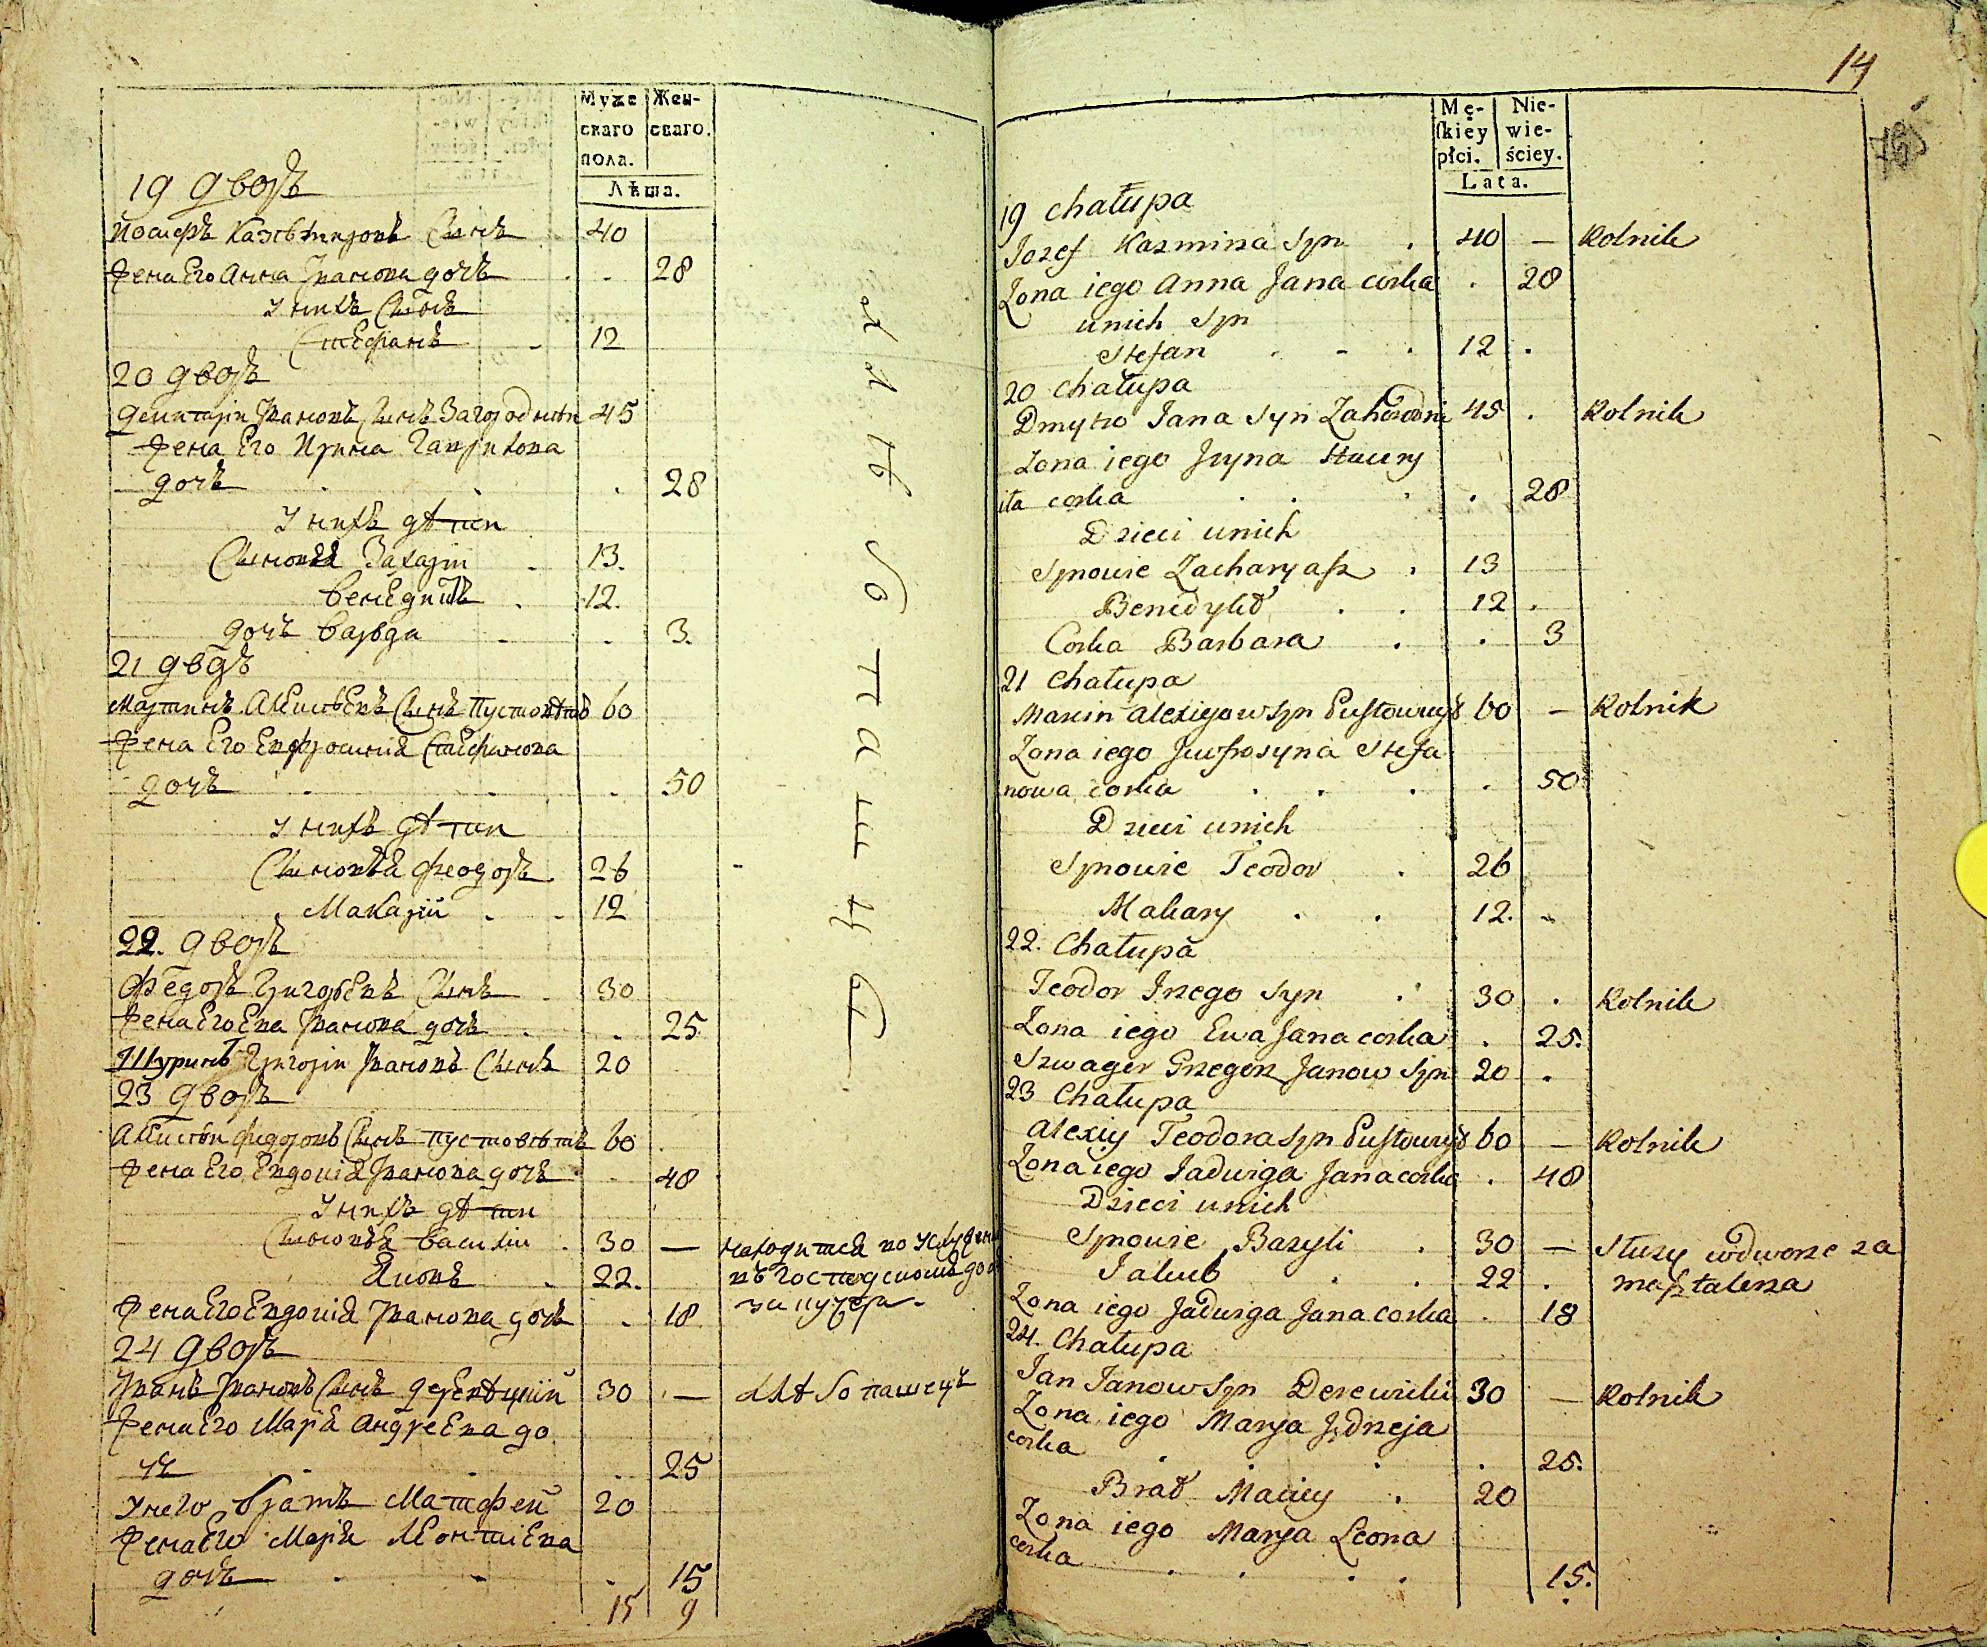 Муже
скаго
пола.
Жен-
скаго.
Лѣта.
19 дворъ
Иосифъ Казѣмировъ Сынъ 40
Жена Его Анна Иванова дочъ . . 28
У нихъ Сынъ
Стефанъ - 12
20 дворъ
Дмитрій Ивановъ Сынъ Загородній 45
Жена Его Ирина Гаврилова
дочъ . . . 28
У нихъ дѣти
Сыновья Захарій 13.
Венедиктъ . 12.
дочъ Варвара . 3.
21 дворъ
Мартинъ Алексѣевъ Сынъ Пустовѣтъ 60
Жена Его Евфросинія Стефанова
дочъ . . . 50
У нихъ дѣти
Сыновья Феодоръ 26
Макарій - 12
22. дворъ
Федоръ Григорьевъ Сынъ . 30
Жена Его Ева Иванова дочъ . . 25
Шуринъ Григорій Ивановъ Сынъ 20
23 дворъ
Алексѣй Федоровъ Сынъ Пустовѣтъ 60
Жена Его Евдокія Иванова дочъ . 48
У нихъ дѣти
Сыновья Василій . 30 — находится по
Яковъ . 22. въ
за кучера.
Жена Его Евдокія Иванова дочъ . 18
24 дворъ
Иванъ Ивановъ Сынъ Деревѣцкій 30 — хлѣбопашецъ
Жена Его Марія Андреева до
чъ . . . 25
У него братъ Матфей 20
Жена Его Марія Леонтіева
дочъ . - . 15
15 9
Хлѣбопашцы
14
Mę-
skiéy
płci.
Nie-
wie-
ściey.
Lata.
19 Chałupa
Jozef Kazmirza Syn . 40 — Rolnik
Zona iego Anna Jana corka . 28
unich Syn
Stefan . - . 12 .
20 Chałupa
Dmytro Jana Syn Zahorodni 45 . Rolnik
Zona iego Jryna Hawry
iła corka . . . . 28
Dzieci unich
Synowie Zacharyasz . 13
Benedykt . . 12 .
Corka Barbara . . 3
21 Chałupa
Marcin Alexiejow Syn Pustowuyt 60 — Rolnik
Zona iego Jewfrosyna Stefa
nowa corka . . . . 50
Dzieci unich
Synowie Teodor . 26
Makary . . 12. -
22. Chałupa
Teodor Grzego Syn . 30 . Rolnik
Zona iego Ewa Jana corka . 25.
Szwager Grzegorz Janow Syn 20 .
23 Chałupa
Alexiy Teodora Syn Pustowuyt 60 — Rolnik
Zona iego Jadwiga Jana corka . 48
Dzieci unich
Synowie Bazyli . 30 — Służy wdworze za
Jakub . . 22 . masztalerza
Zona iego Jadwiga Jana corka . 18
24. Chałupa
Jan Janow Syn Derewicki 30 — Rolnik
Zona iego Marya Jędrzeja
corka . . . . 25.
Brat Maciey . 20
Zona iego Marya Leona
corka . . . . 15.